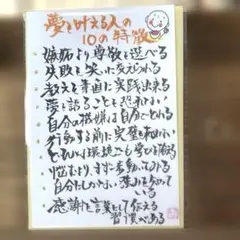 夢を叶える人の
10の特徴
嫉妬より尊敬を選べる
失敗を笑って変えられる
教えを素直に実践出来る
夢を語ることを恐れない
自分の機嫌は自分でとれる
行動する前に完璧を求めない
どんな環境でも学びを得る
悩むより、まず行動してみる
自分にしかない強みを知っている
感謝を言葉にして伝える
習慣がある